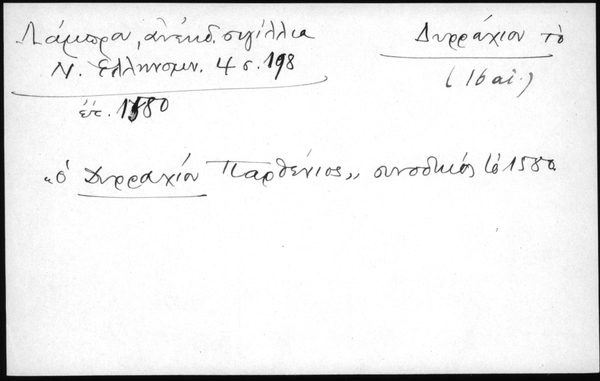 Λάμπρου, ἀνέκδ. σιγίλλια
Ν. Ἑλληνομν. 4 σ. 198
ἔτ. 1580
Δυρράχιον τὸ
(16 αἰ.)
«ὁ Δυρραχίου Παρθένιος», συνοδικὸς 1580